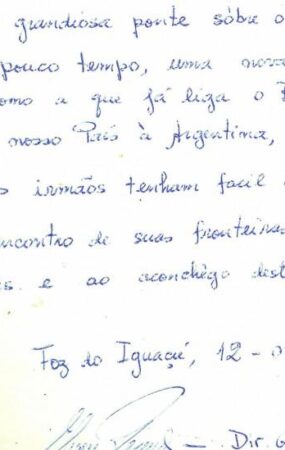 grandiosa ponte sôbre o
pouco tempo, uma nova
como a que já liga o
nosso País à Argentina,
irmãos tenham facil
encontro de suas fronteiras
e ao aconchêgo dest
Foz do Iguaçú, 12 - 0
— Dir. G